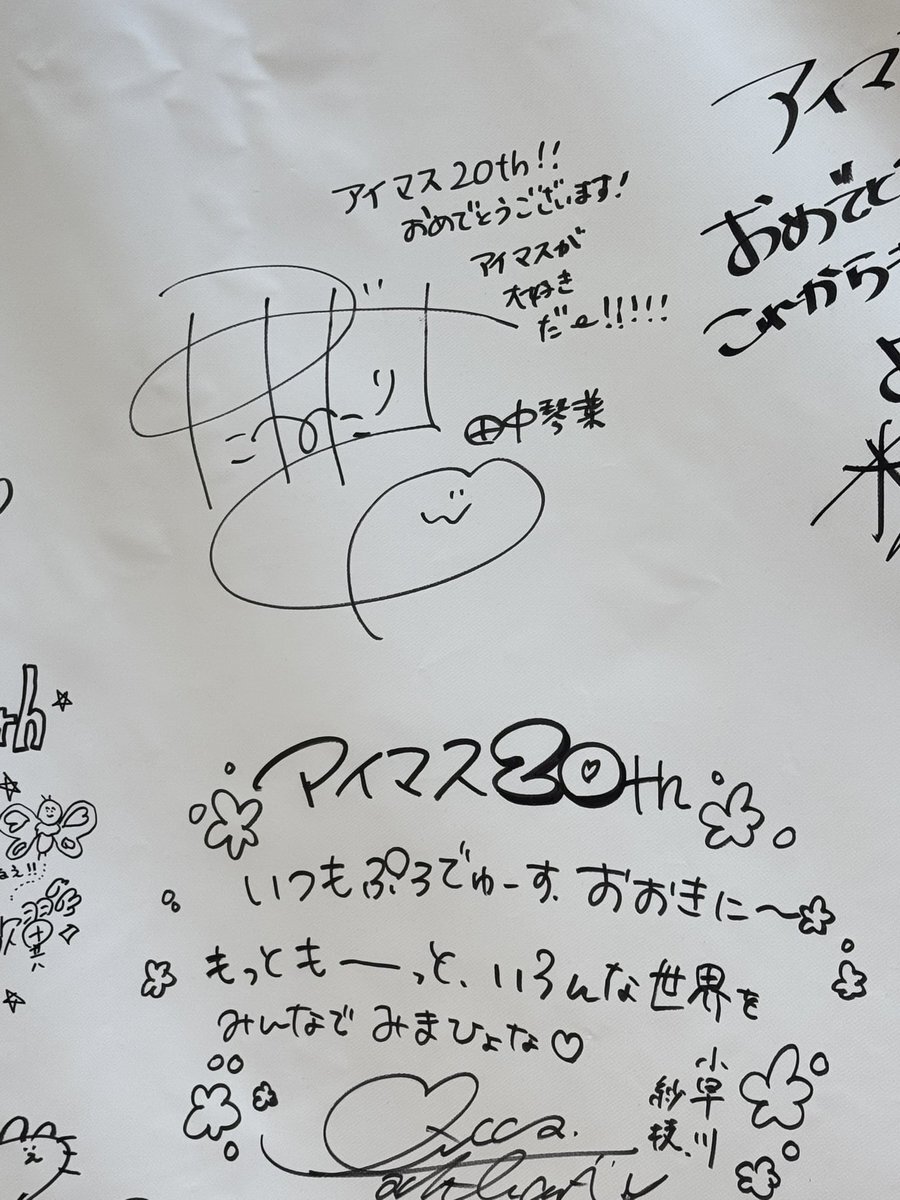 アイマス20th!!
おめでとうございます!
アイマスが
大好き
だー!!!!!
田中琴葉
アイマ
おめでと
これから
th
ねぇ!!
アイマス20th
いつもぷろでゅーす、おおきに〜
もっともーっと、いろんな世界を
みんなで みまひょな♡
小早川
紗枝